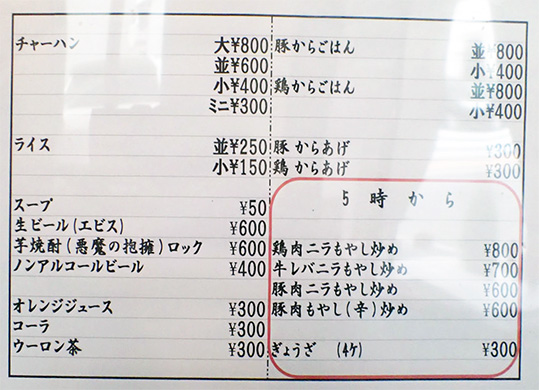 チャーハン 大¥800
並¥600
小¥400
ミニ¥300
ライス 並¥250
小¥150
スープ ¥50
生ビール(エビス) ¥600
芋焼酎(悪魔の抱擁)ロック ¥600
ノンアルコールビール ¥400
オレンジジュース ¥300
コーラ ¥300
ウーロン茶 ¥300
豚からごはん 並¥800
小¥400
鶏からごはん 並¥800
小¥400
豚からあげ ¥300
鶏からあげ ¥300
5時から
鶏肉ニラもやし炒め ¥800
牛レバニラもやし炒め ¥700
豚肉ニラもやし炒め ¥600
豚肉もやし(辛)炒め ¥600
ぎょうざ (4ケ) ¥300